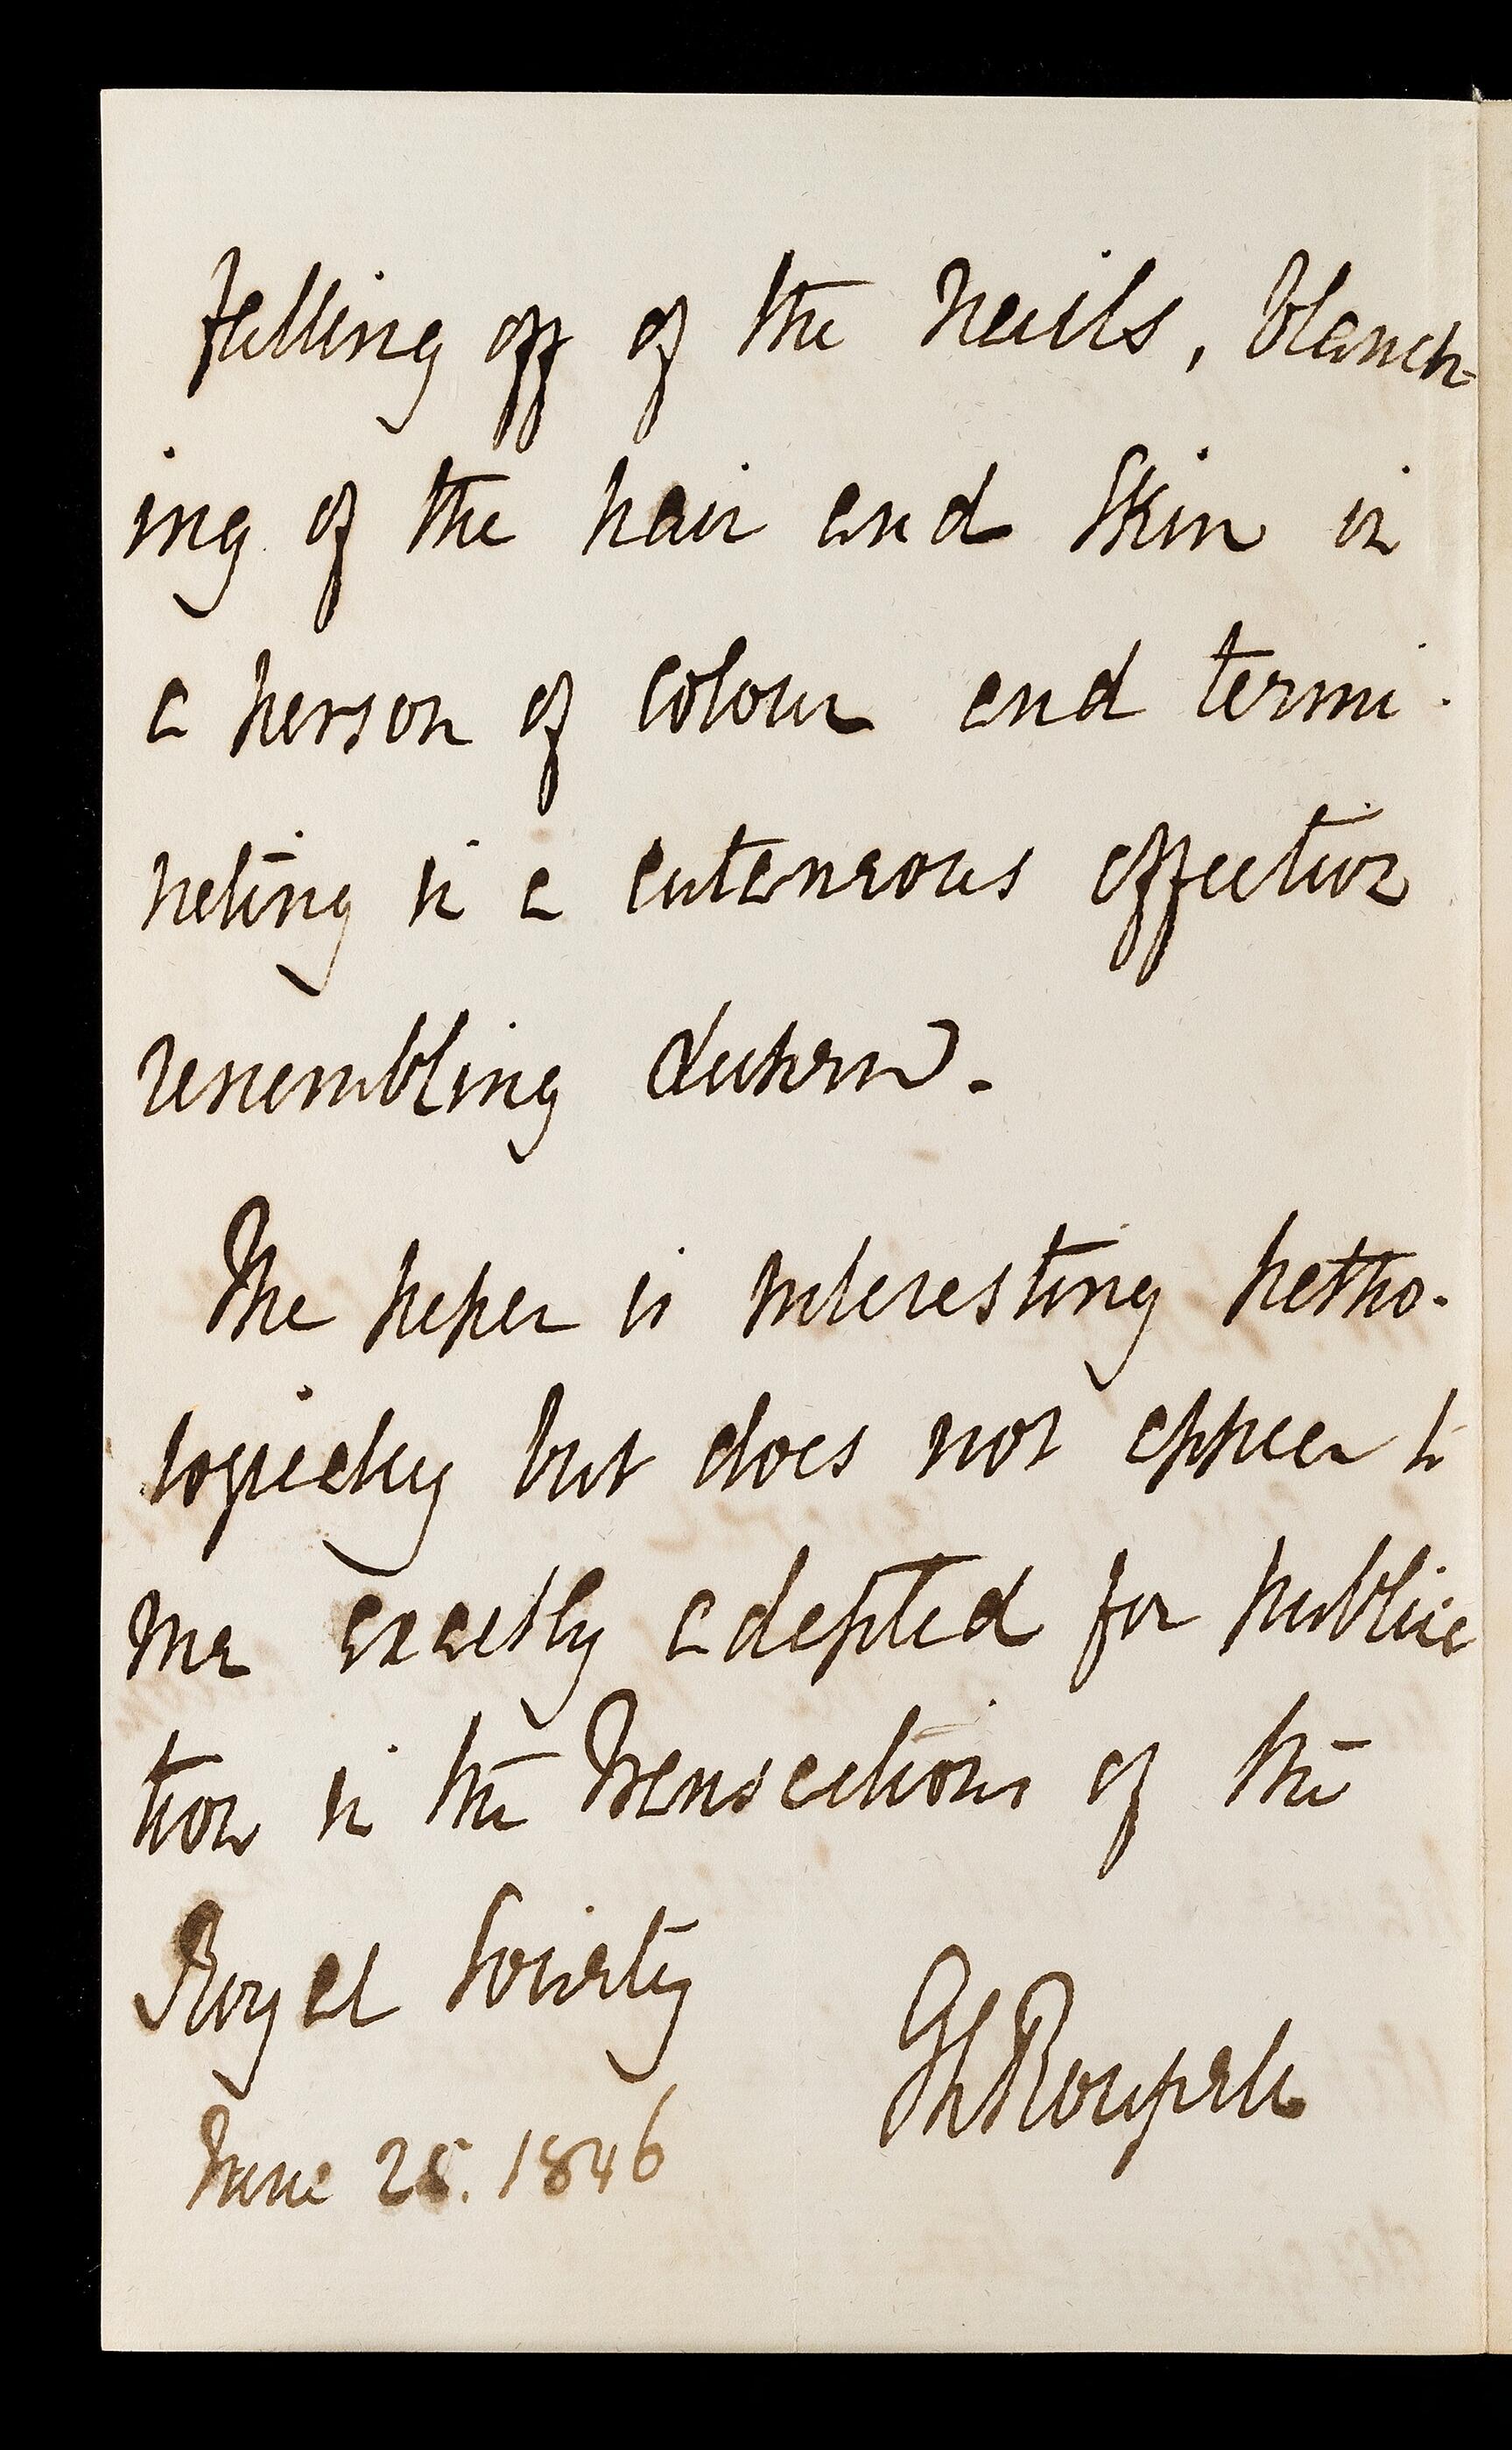 falling off of the nails, blanch-
ing of the hair and skin in
a person of colour and termi-
nating in a cutaneous affection
resembling
The paper is interesting patho-
logically but does not appear to
me exactly adapted for publica
tion in the Transactions of the
Royal Society
GLRoupell
June 25. 1846